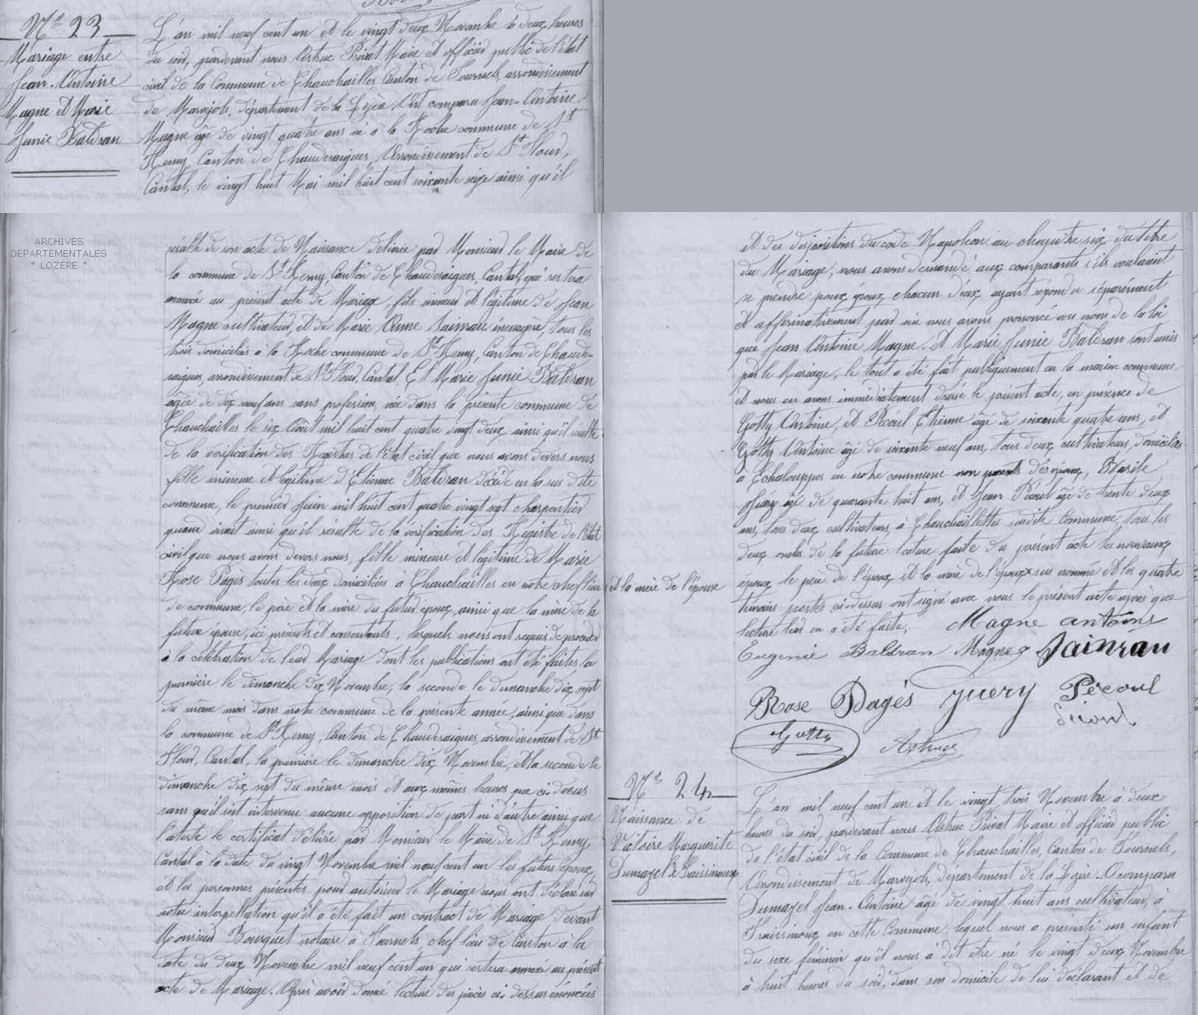 N° 23
Mariage entre
Jean-Antoine
Magne et Marie
Junie Baldran
L'an mil neuf cent un et le vingt deux Novembre à deux heures
du soir, pardevant nous Astruc Privat Maire et officier public de l'état
civil de la Commune de Chauchailles Canton de Fournels, arrondissement
de Marvejols, département de la Lozère. Ont comparu Jean-Antoine
Magne âgé de vingt quatre ans né à la Roche commune de St
Remy, Canton de Chaudesaigues, Arrondissement de St Flour,
Cantal, le vingt huit Mai mil huit cent soixante seize ainsi qu'il
ARCHIVES
DEPARTEMENTALES
* LOZERE *
résulte de son acte de Naissance délivré par Monsieur le Maire de
la commune de St Remy, Canton de Chaudesaigues, Cantal, qui restera
annexé au présent acte de Mariage, fils mineur et légitime de Jean
Magne cultivateur, et de Marie Anne Sainrau ménagère tous les
trois domiciliés à la Roche commune de St Remy, Canton de Chaude-
saigues, arrondissement de St Flour, Cantal. Et Marie Junie Baldran
âgée de dix neuf ans sans profession, née dans la présente commune de
Chauchailles le six Août mil huit cent quatre vingt deux ainsi qu'il résulte
de la vérification des Registres de l'état civil que nous avons devers nous
fille mineure et légitime d'Etienne Baldran décédé en la sus dite
commune, le premier Juin mil huit cent quatre vingt sept charpentier
quand vivait ainsi qu'il résulte de la vérification des Registre de l'état
civil que nous avons devers nous, fille mineure et légitime de Marie
Rose Pagès toutes les deux domiciliées à Chauchailles en notre chef lieu
de commune, le père et la mère du futur époux, ainsi que la mère de la
future épouse, ici présents et consentants, lesquels nous ont requis de procéder
à la célébration de leur Mariage dont les publications ont été faites la
première le dimanche dix Novembre, la seconde le dimanche dix sept
du même mois dans notre commune de la présente année, ainsi que dans
la commune de St Remy, Canton de Chaudesaigues, arrondissement de St
Flour, Cantal, la première le dimanche dix Novembre, et la seconde le
dimanche dix sept du même mois et aux mêmes heures que ci-dessus
sans qu'il soit intervenu aucune opposition de part ni d'autre ainsi que
l'atteste le certificat délivré par Monsieur le Maire de St Remy,
Cantal à la date du vingt Novembre mil neuf cent un les futurs époux,
et les personnes présentes pour autoriser le Mariage nous ont déclaré sur
notre interpellation qu'il a été fait un contract de Mariage devant
Monsieur Bousquet notaire à Fournels, chef lieu de Canton à la
date du deux Novembre mil neuf cent un qui restera annexé au présent
acte de Mariage. Après avoir donné lecture des pièces ci-dessus énoncées
et des dispositions du code Napoléon au chapitre six du titre
du Mariage, nous avons demandé aux comparants s'ils voulaient
se prendre pour époux chacun d'eux ayant répondu séparément
et affirmativement nous avons prononcé au nom de la loi
que Jean Antoine Magne et Marie Junie Baldran sont unis
par le Mariage, le tout a été fait publiquement en la maison commune
et nous en avons immédiatement dressé le présent acte, en présence de
Gotty Antoine, et Pécoul Etienne âgé de soixante quatre ans, et
Gotty Antoine âgé de soixante neuf ans, tous deux cultivateurs, domiciliés
à Echaloupes en notre commune non parents des époux, Basile
Juery âgé de quarante huit ans, et Jean Pécoul âgé de trente deux
ans, tous deux cultivateurs, à Chauchaillettes susdite Commune, tous les
deux oncles de la future lecture faite du présent acte les nouveaux
époux le père de l'époux et la mère de l'époux sus nommé et les quatre
et la mère de l'épouse
témoins portés ci-dessus ont signé avec nous le présent acte après que
lecture leur en a été faite.
Magne antoine
Eugenie Baldran Magne Sainrau
Rose Pagés Juery Pécoul
Pécoul
Gotty
Astruc
N° 24
Naissance de
Victoire Marguerite
Dumazel de Fraissinoux
L'an mil neuf cent un et le vingt trois Novembre à deux
heures du soir, pardevant nous Astruc Privat Maire et officier public
de l'état civil de la Commune de Chauchailles, Canton de Fournels,
Arrondissement de Marvejols, département de la Lozère. A comparu
Dumazel Jean-Antoine âgé de vingt huit ans cultivateur, à
Fraissinoux en cette Commune, lequel nous a présenté un enfant
du sexe féminin qu'il nous a dit être né le vingt deux Novembre
à huit heures du soir, dans son domicile de lui déclarant et de